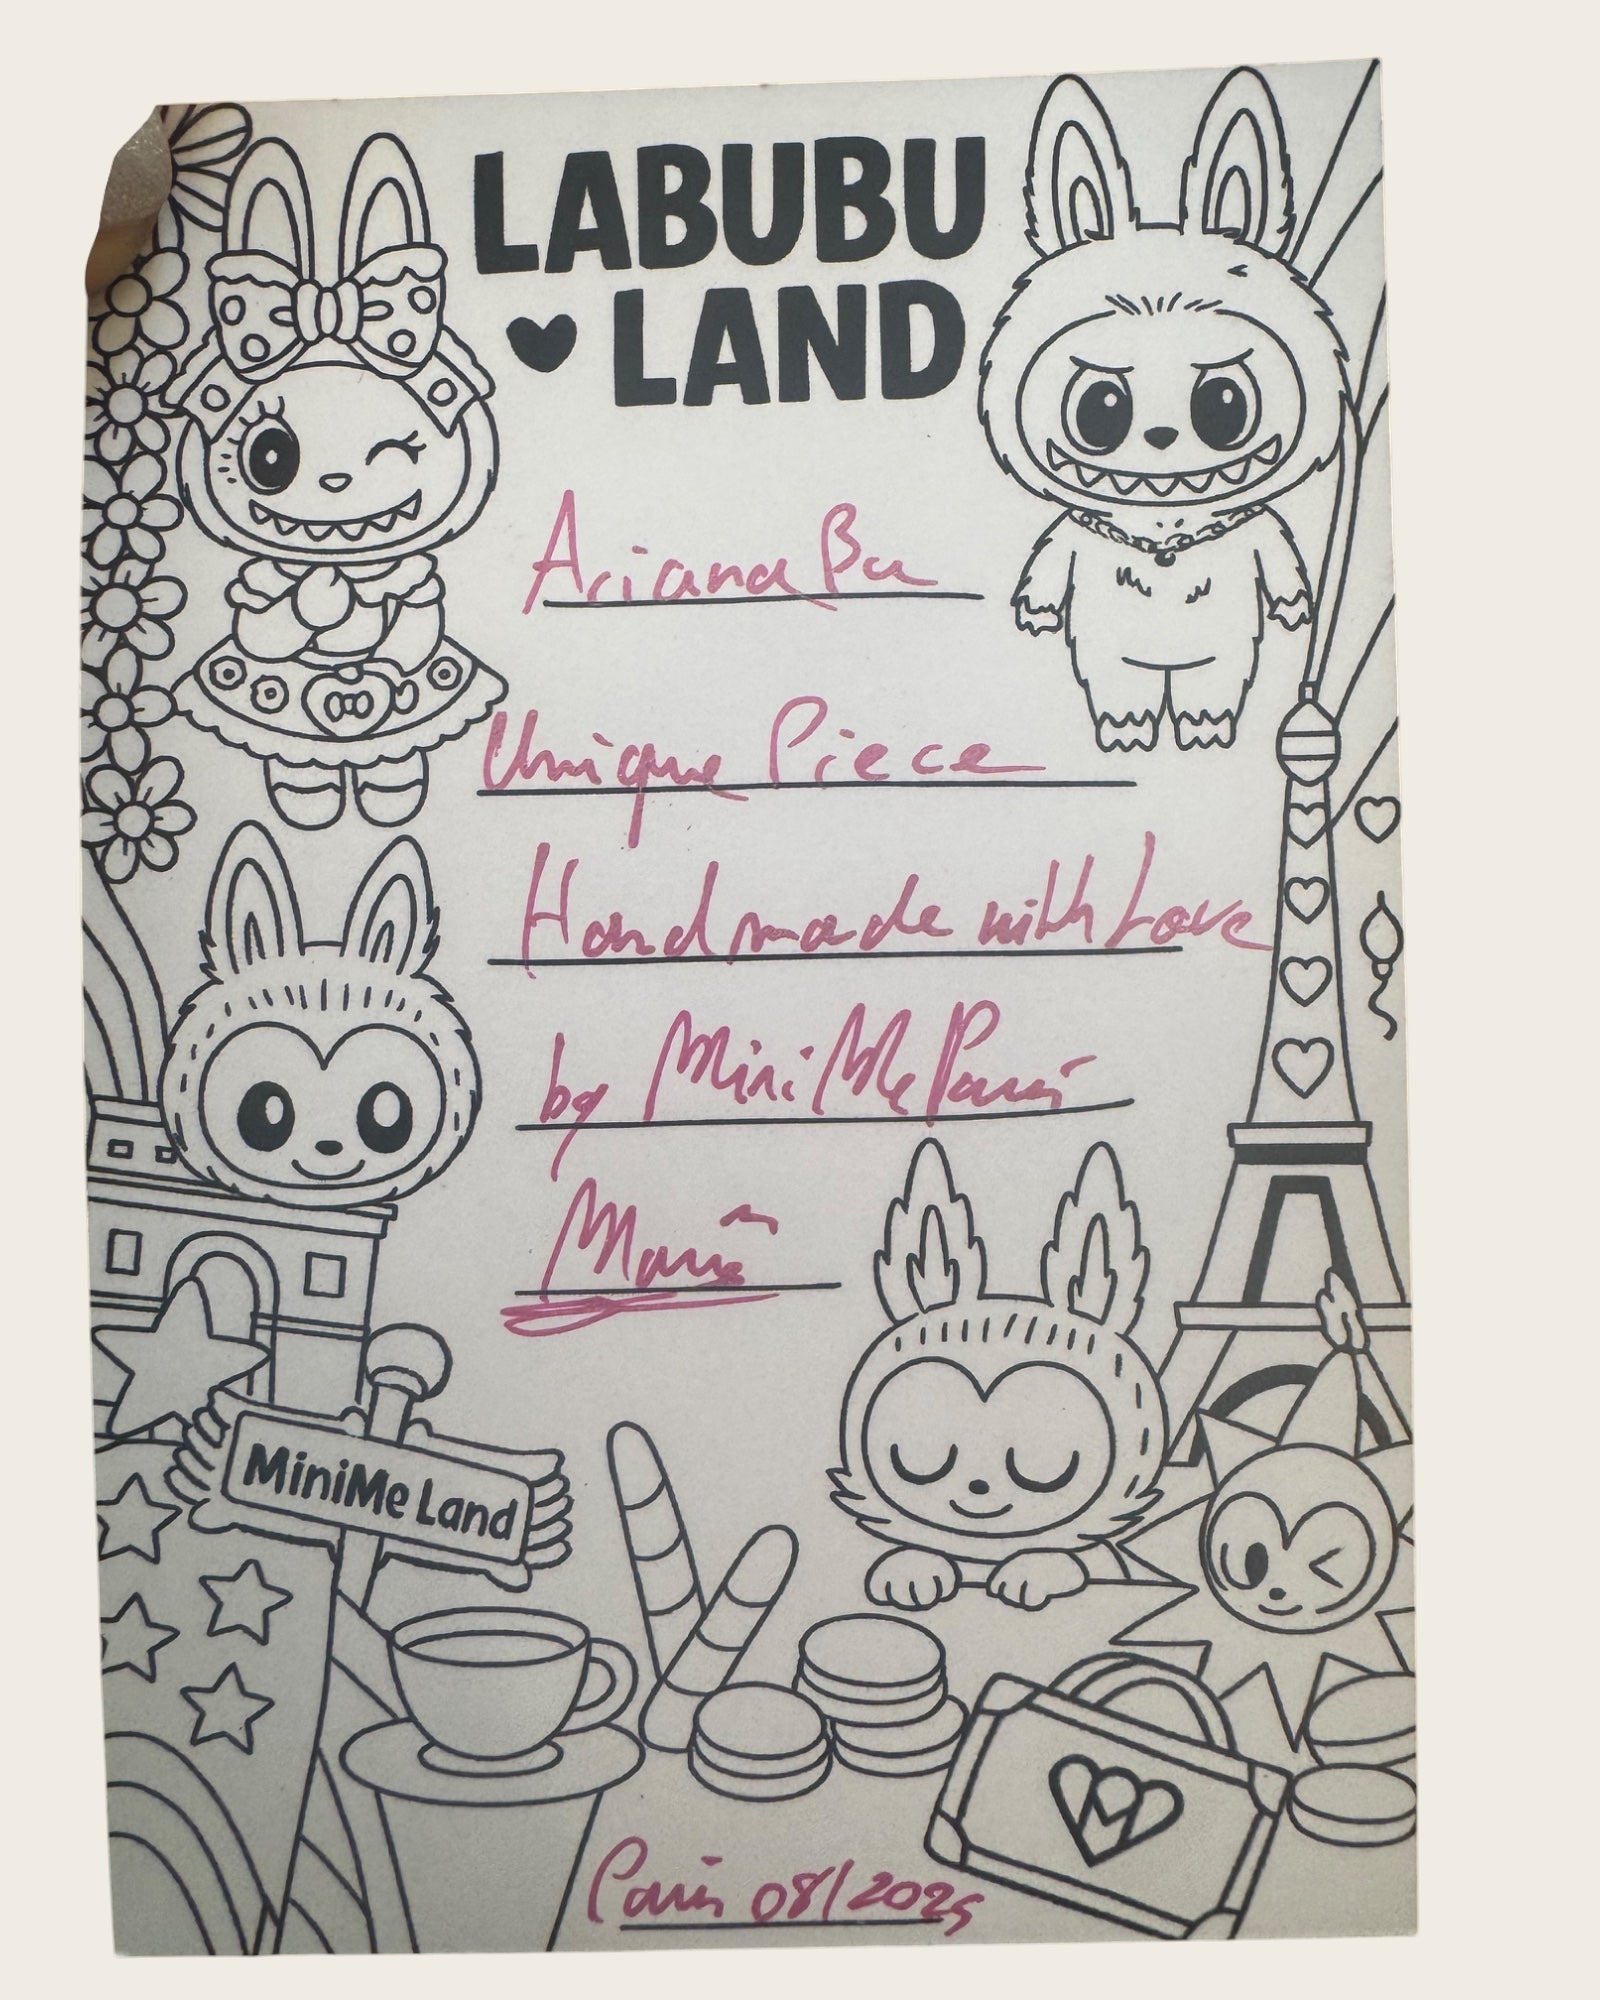 LABUBU
LAND
Ariana Bu
Unique Piece
Handmade with Love
by MiniMeParis
MiniMe Land
Paris 08/2025